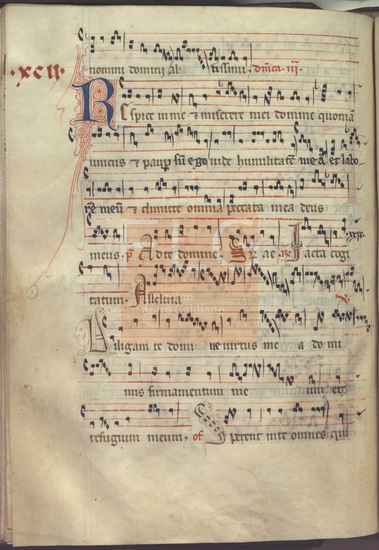 ·XCII·
nomini domini al tissimi. Dnica. iii.
Respice in me & miserere mei domine quonia
unicus & paup sū ego uide humilitatē meā & labo
rē meū & dimitte omnia peccata mea deus
meus. p Ad te domine. Iacta cogi
tatum. Alleluia
Diligam te domi ne uirtus me a domi
nus firmamentum me um et
refugium meum. of Sperent in te omnes qui